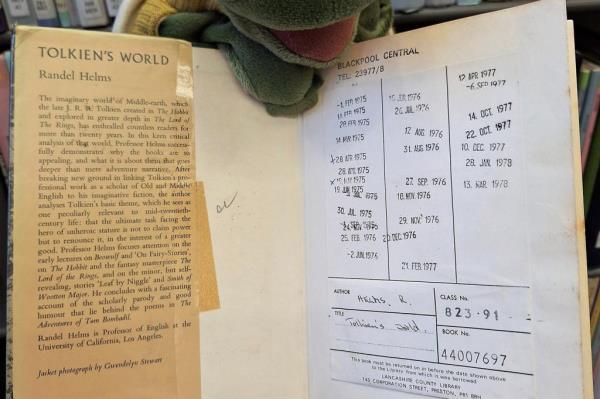 TOLKIEN'S WORLD
Randel Helms
The imaginary world of Middle-earth, which
the late J. R. R. Tolkien created in The Hobbit
and explored in greater depth in The Lord of
The Rings, has enthralled countless readers for
more than twenty years. In this keen critical
analysis of that world, Professor Helms success-
fully demonstrates why the books are so
appealing, and what it is about them that goes
deeper than mere adventure narrative. After
breaking new ground in linking Tolkien's pro-
fessional work as a scholar of Old and Middle
English to his imaginative fiction, the author
analyses Tolkien's basic theme, which he sees as
one peculiarly relevant to mid-twentieth-
century life: that the ultimate task facing the
hero of unheroic stature is not to claim power
but to renounce it, in the interest of a greater
good. Professor Helms focuses attention on the
early lectures on Beowulf and 'On Fairy-Stories',
on The Hobbit and the fantasy masterpiece The
Lord of the Rings, and on the minor, but self-
revealing, stories 'Leaf by Niggle' and Smith of
Wootton Major. He concludes with a fascinating
account of the scholarly parody and good
humour that lie behind the poems in The
Adventures of Tom Bombadil.
Randel Helms is Professor of English at the
University of California, Los Angeles.
Jacket photograph by Gwendolyn Stewart
BLACKPOOL CENTRAL
TEL: 23977/8
-1. FEB 1975
FEB 1975
28. FEB 1975
14 MAR 1975
28 APR 1975
28. APR 1975
1975
19 JUN 1975
JUL 1975
30. JUL 1975
25. FEB 1976
-2 JUN 1976
JUN 1976
JUL 1976
12 AUG 1976
31. AUG 1976
27. SEP 1976
18 NOV 1976
29. NOV 1976
20 DEC 1976
24 FEB 1977
12 APR 1977
-6 SEP 1977
14. OCT 1977
22. OCT 1977
10. DEC 1977
28. JAN 1978
13. MAR 1978
AUTHOR
HELMS. R.
TITLE
Tolkien's world.
CLASS No.
823.91
BOOK No.
44007697
This book must be returned on or before the date shown above
to the Library from which it was borrowed
LANCASHIRE COUNTY LIBRARY
143 CORPORATION STREET, PRESTON, PR1 8RH